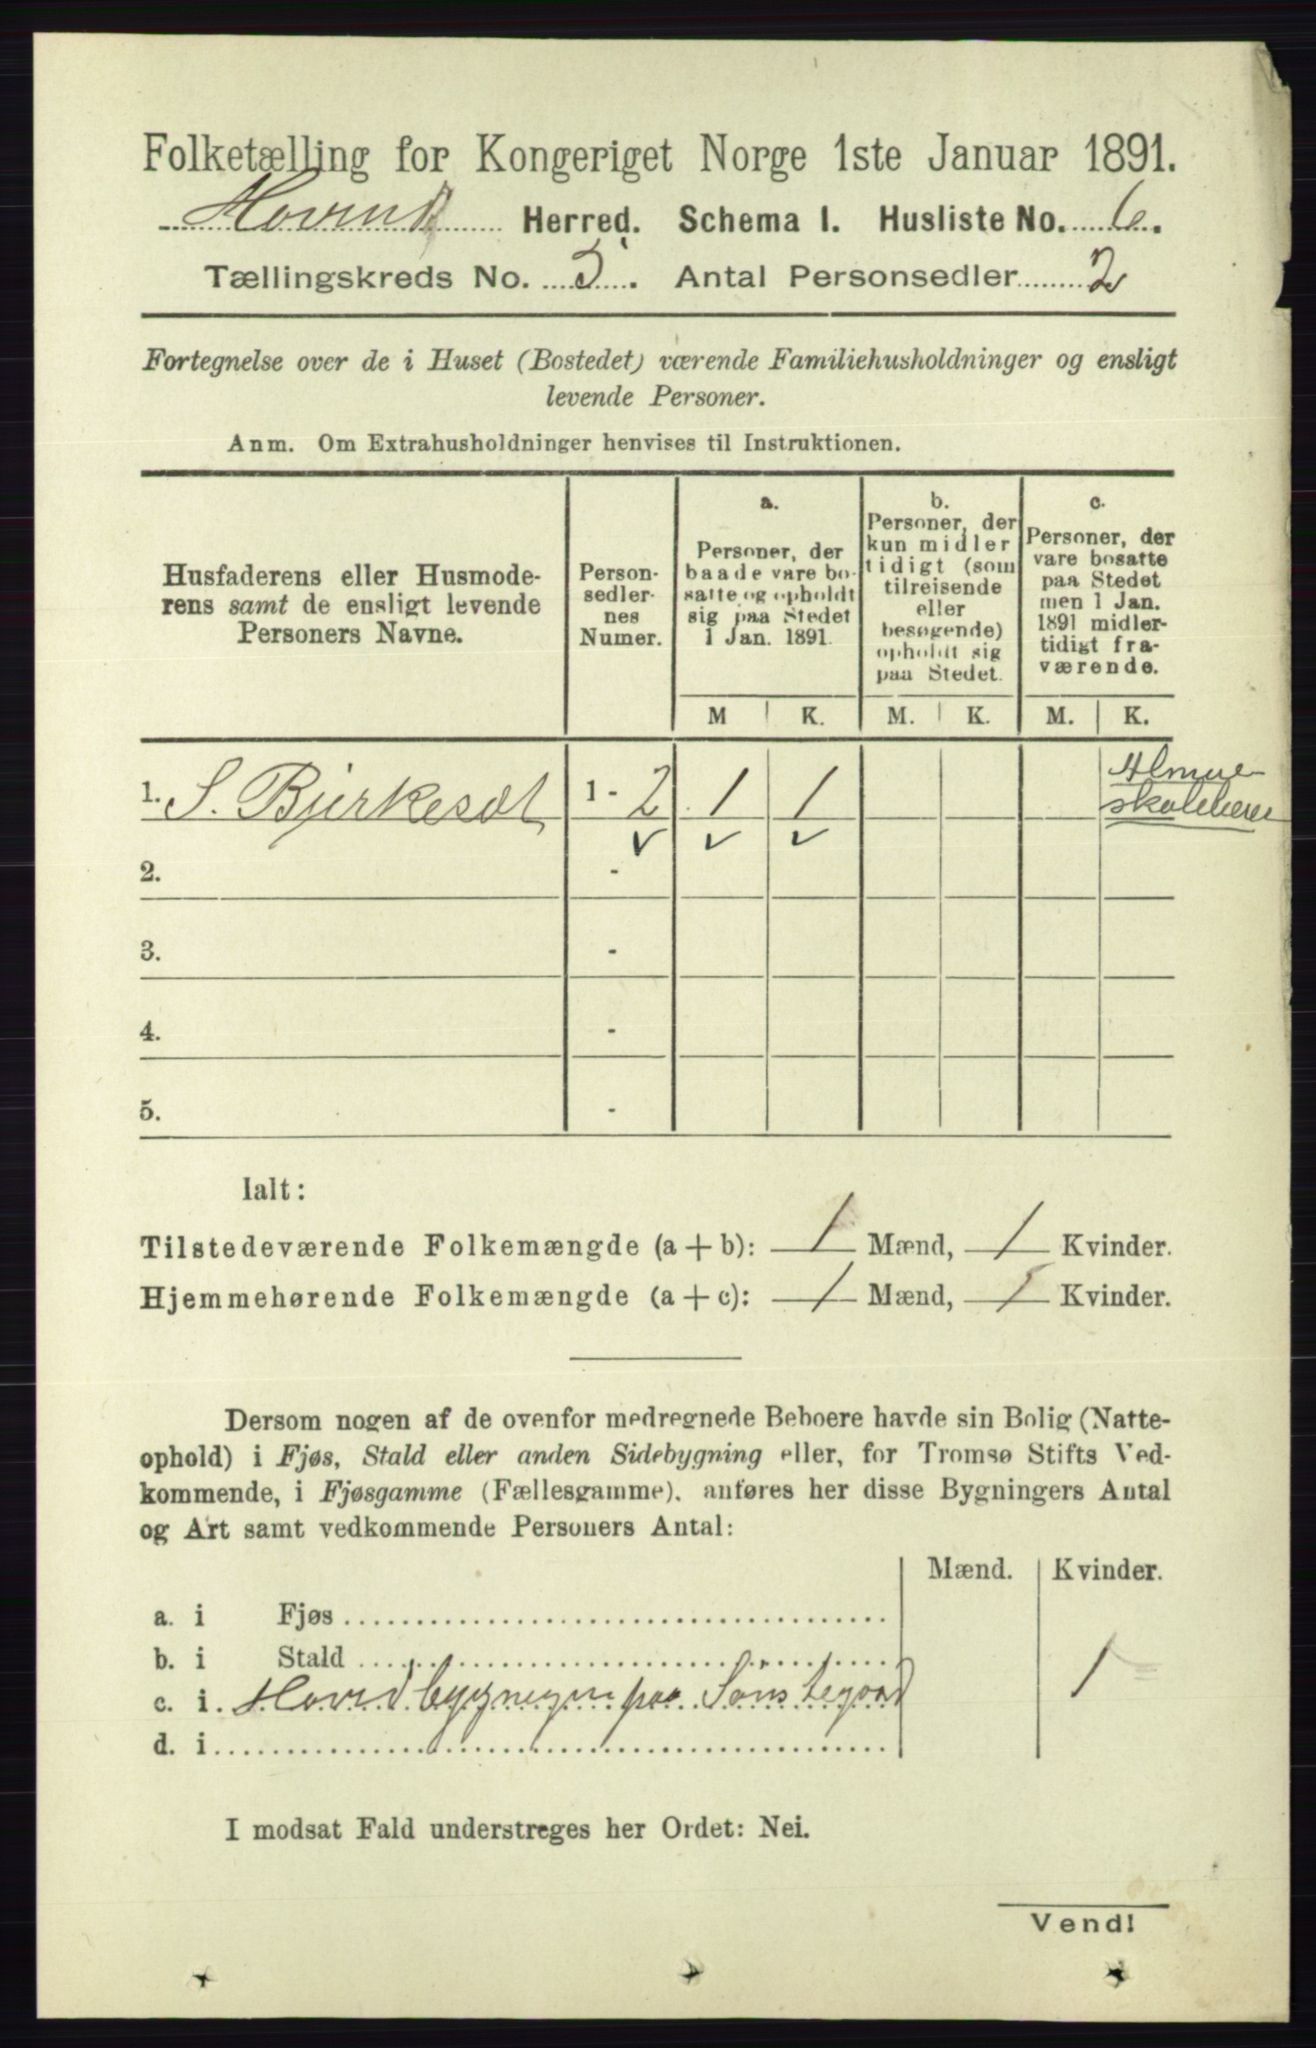 Folketælling for Kongeriget Norge 1ste Januar 1891.
Hovind Herred. Schema I. Husliste No. 6.
Tællingskreds No. 5. Antal Personsedler 2
Fortegnelse over de i Huset (Bostedet) værende Familiehusholdninger og ensligt
levende Personer.
Anm. Om Extrahusholdninger henvises til Instruktionen.
Husfaderens eller Husmode-
rens samt de ensligt levende
Personers Navne.
Person-
sedler-
nes
Numer.
a.
Personer, der
baade vare bo-
satte og opholdt
sig paa Stedet
1 Jan. 1891.
b.
Personer, der
kun midler
tidigt (som
tilreisende
eller
besøgende)
opholdt sig
paa Stedet.
c.
Personer, der
vare bosatte
paa Stedet
men 1 Jan.
1891 midler-
tidigt fra-
værende.
M K. M. K. M. K.
1. S. Bjerkesæt 1 - 2 1 1
Almue
skolelærer
2. -
3. -
4. -
5. -
Ialt:
Tilstedeværende Folkemængde (a + b): 1 Mænd, 1 Kvinder.
Hjemmehørende Folkemængde (a + c): 1 Mænd, 1 Kvinder.
Dersom nogen af de ovenfor medregnede Beboere havde sin Bolig (Natte-
ophold) i Fjøs, Stald eller anden Sidebygning eller, for Tromsø Stifts Ved-
kommende, i Fjøsgamme (Fællesgamme), anføres her disse Bygningers Antal
og Art samt vedkommende Personers Antal:
Mænd. Kvinder.
a. i Fjøs
b. i Stald
c. i Hovedbygnegen paa 1
d. i
I modsat Fald understreges her Ordet: Nei.
Vend!